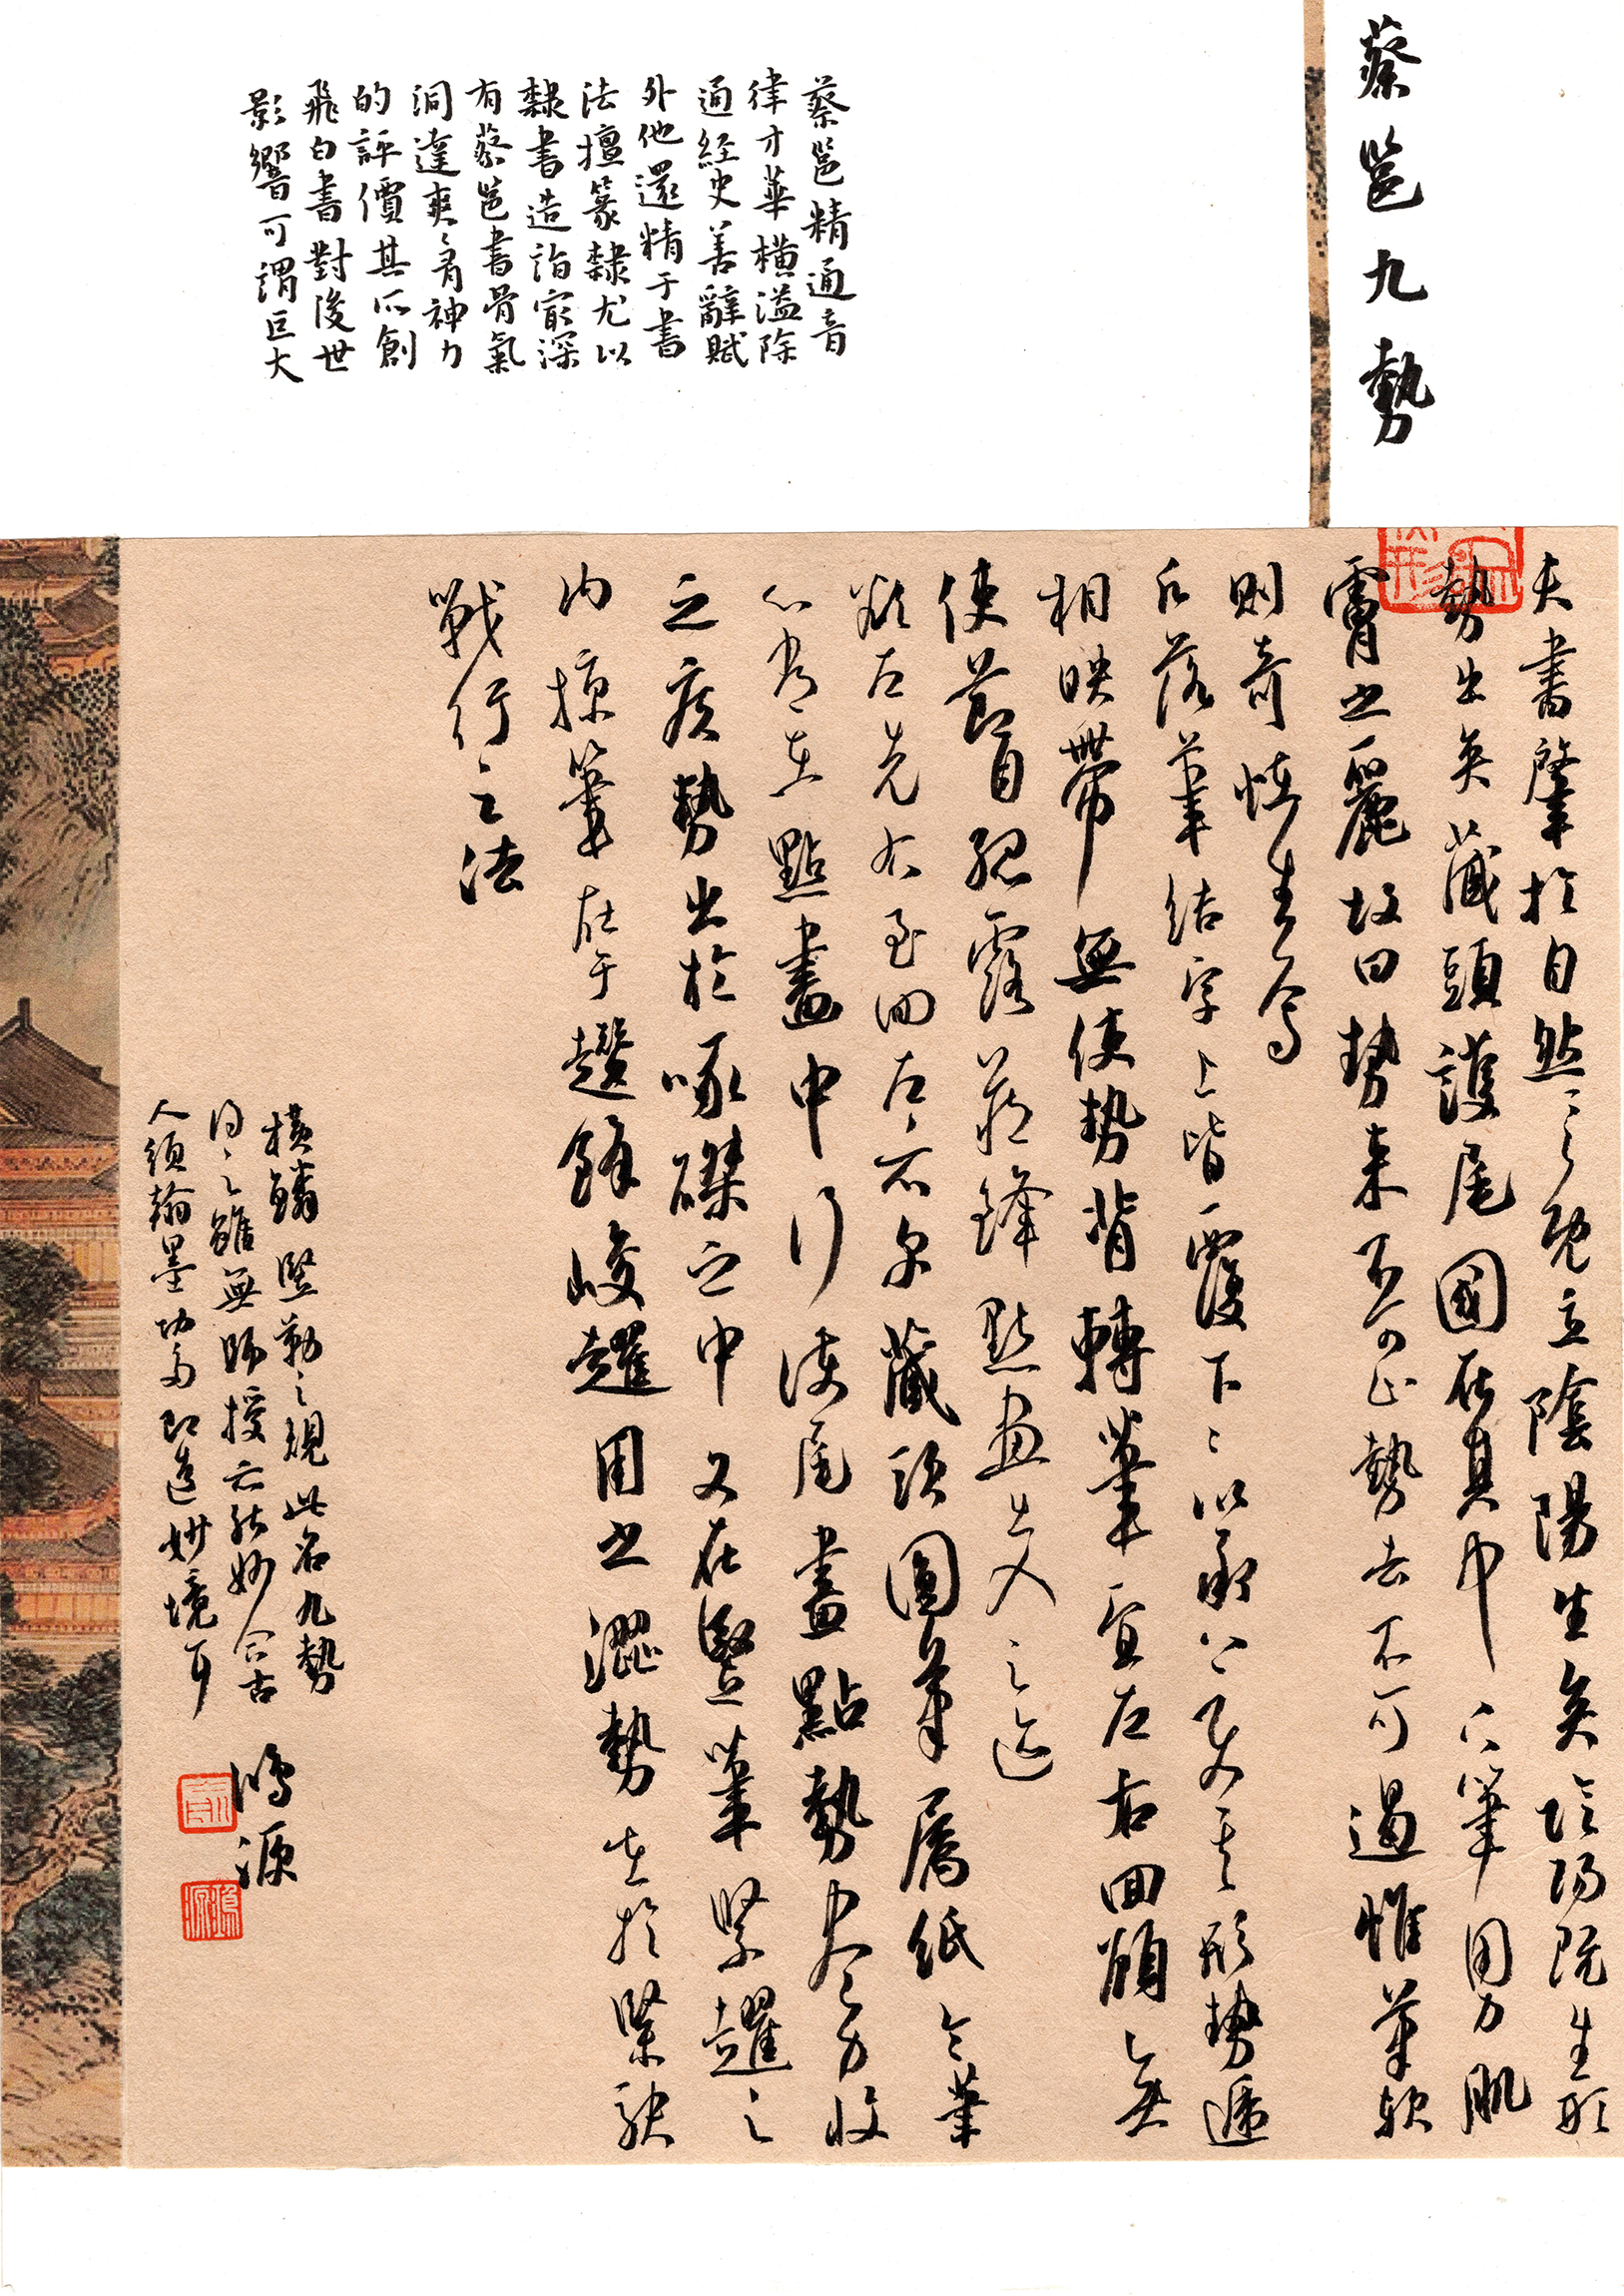 蔡邕九勢
蔡邕精通音
律才華橫溢除
通經史善辭賦
外他還精于書
法擅篆隸尤以
隸書造詣最深
有蔡邕書骨氣
洞達爽〻有神力
的評價其所創
飛白書對後世
影響可謂巨大
夫書肇於自然〻〻既立陰陽生矣陰陽既生形
勢出矣藏頭護尾國在其中下筆用力肌
膚之麗故曰勢來不可止勢去不可遏惟筆軟
則奇怪生焉
凡落筆結字上皆覆下〻以承上〻使其形勢遞
相映帶無使勢背轉筆宜左右回顧無
使節目孤露藏鋒點畫出入之迹
欲左先右至回左亦尔藏頭圓筆屬紙令筆
心常在點畫中行護尾畫點勢盡力收
之疾勢出於啄磔之中又在豎筆緊趯之
内掠筆在于趲鋒峻趯用之澀勢在於緊駃
戰行之法
橫鱗竪勒之規此名九勢
得之雖無師授亦能妙合古
人須翰墨功多即造妙境耳
鴻源
鴻源